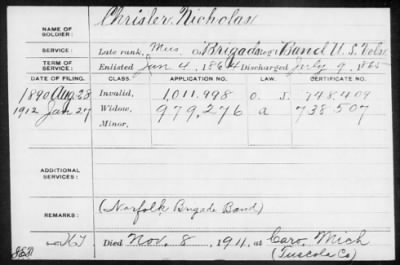 NAME OF SOLDIER: Chrisler, Nicholas
SERVICE: Late rank, Mus. Co. Brigade Reg't Band U. S. Vols
TERM OF SERVICE: Enlisted Jan 4, 1864 Discharged July 9, 1865
DATE OF FILING. CLASS. APPLICATION NO. LAW. CERTIFICATE NO.
1890 Aug. 28 Invalid, 1,011.998 O. S. 748.409
1912 Jan 27 Widow, 979,276 a 738.507
Minor,
ADDITIONAL SERVICES:
REMARKS: (Norfolk Brigade Band)
Died Nov. 8, 1911, at Caro, Mich
(Tuscola Co)